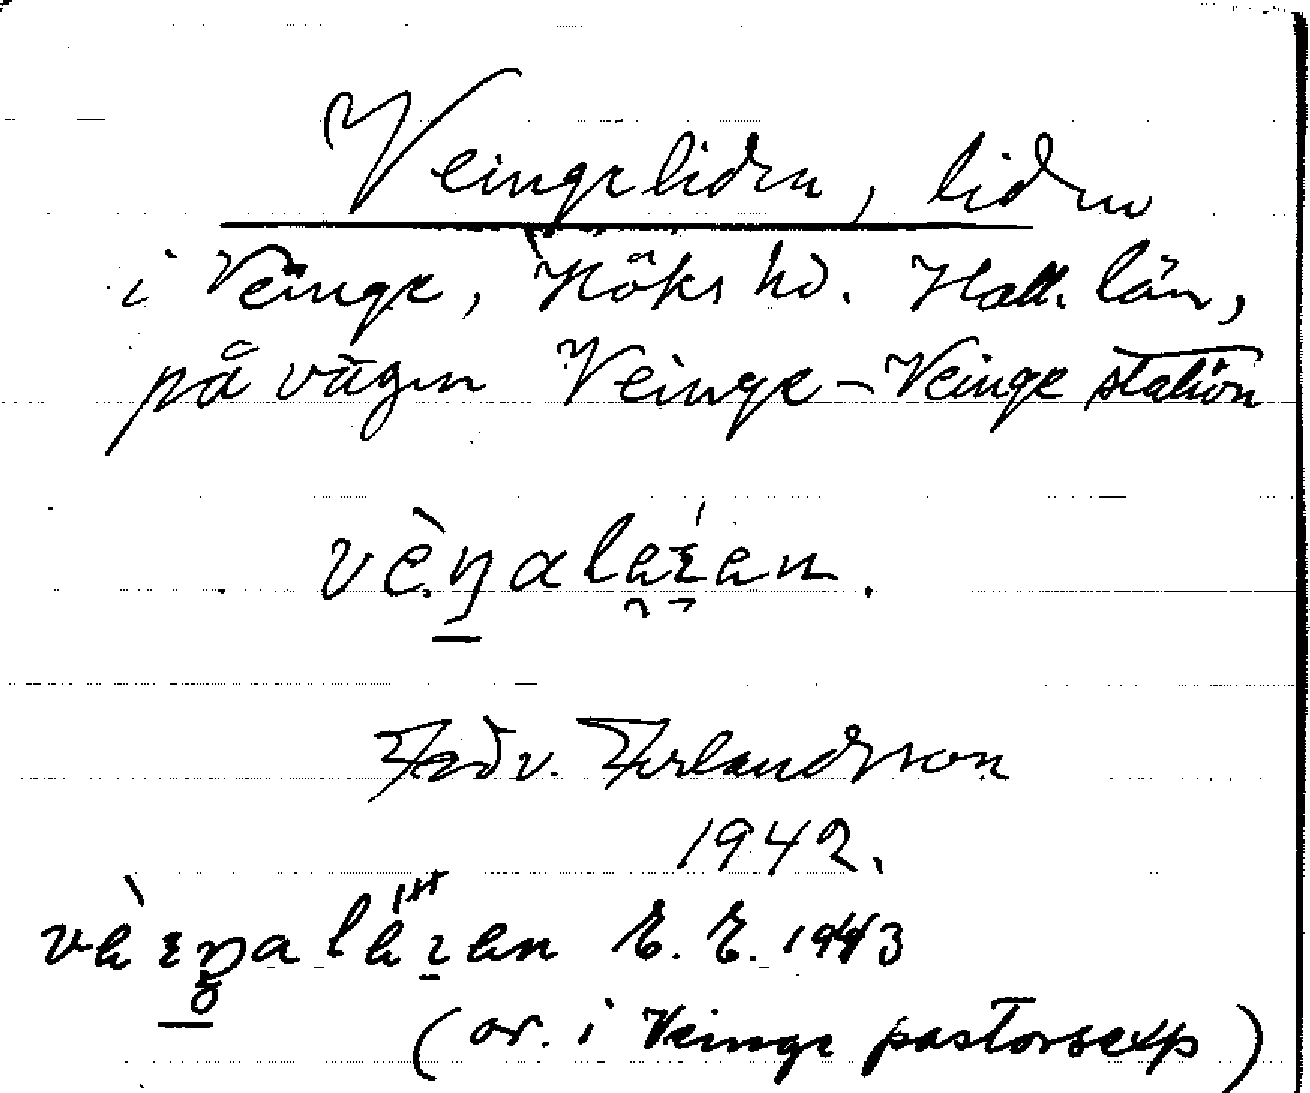 Veingeliden, liden
i Veinge, Höks hd. Hall. län,
på vägen Veinge–Veinge station
Edv. Erlandsson
1942.
E. E. 1943
(or. i Veinge pastorsexp)